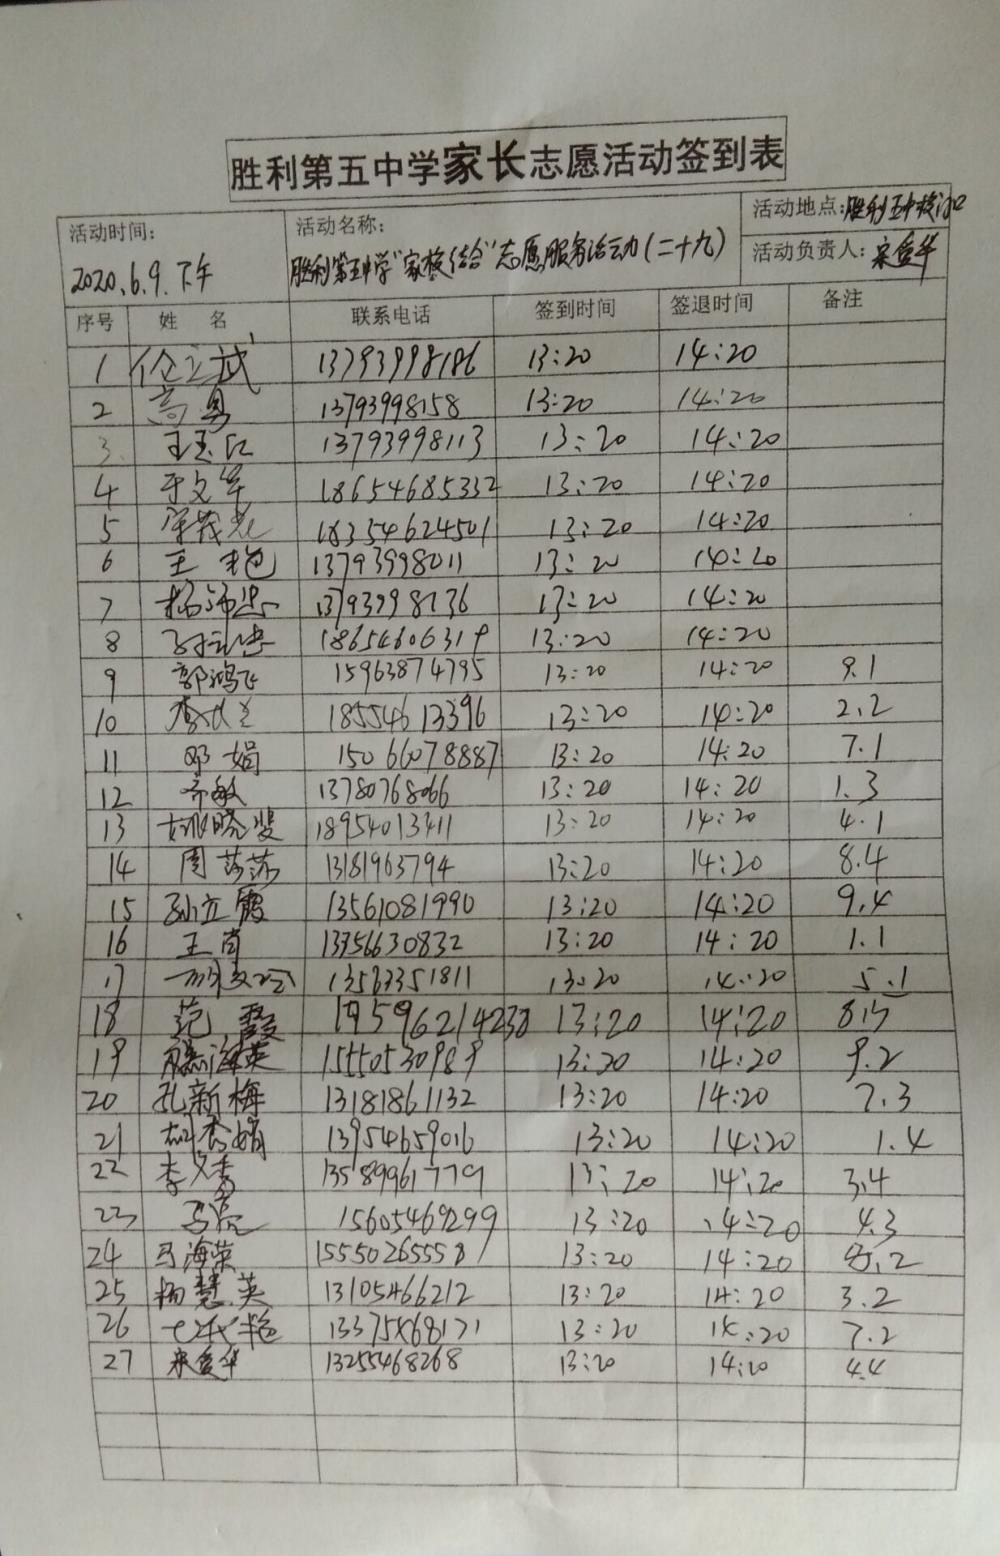 胜利第五中学家长志愿活动签到表
活动时间: 2020.6.9.下午
活动名称: 胜利第五中学"家校结合"志愿服务活动(二十九)
活动地点:胜利五中校门口
活动负责人:宋爱华
序号 姓名 联系电话 签到时间 签退时间 备注
1 13793998186 13:20 14:20
2 高勇 13793998158 13:20 14:20
3 王玉红 13793998113 13:20 14:20
4 于文军 18654685332 13:20 14:20
5 18354624501 13:20 14:20
6 王艳 13793998011 13:20 14:20
7 13793998136 13:20 14:20
8 18654606319 13:20 14:20
9 郭鸿飞 15963874795 13:20 14:20 9.1
10 18554613396 13:20 14:20 2.2
11 邓娟 15066078887 13:20 14:20 7.1
12 齐敏 13780768066 13:20 14:20 1.3
13 姚晓斐 18954013411 13:20 14:20 4.1
14 周莎莎 13181963794 13:20 14:20 8.4
15 孙立霞 13561081990 13:20 14:20 9.4
16 王肖 13356630832 13:20 14:20 1.1
17 13563351811 13:20 14:20 5.1
18 范霞 19596214238 13:20 14:20
19 滕海英 15550530989 13:20 14:20 9.2
20 孔新梅 13181861132 13:20 14:20 7.3
21 胡秀娟 13954659016 13:20 14:20 1.4
22 李秀 13589961779 13:20 14:20 3.4
23 马亮 15605469299 13:20 14:20 4.3
24 马海荣 15550265558 13:20 14:20
25 杨慧英 13105466212 13:20 14:20 3.2
26 13375468171 13:20 14:20 7.2
27 宋爱华 13255468268 13:20 14:20 4.4